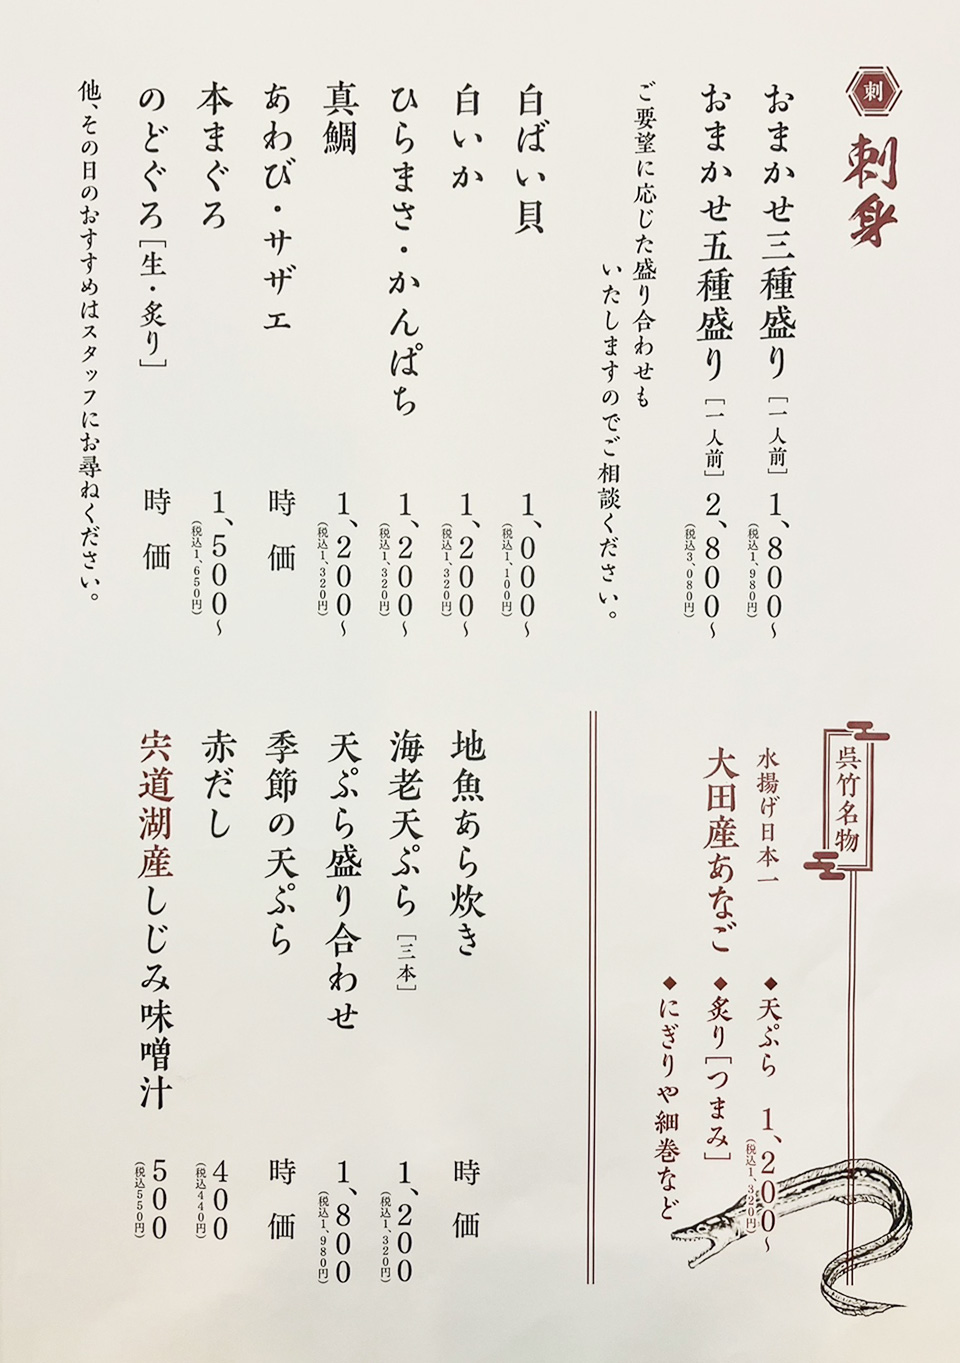 刺
刺身
おまかせ三種盛り［一人前］ 1、800〜
（税込1、980円）
おまかせ五種盛り［一人前］ 2、800〜
（税込3、080円）
ご要望に応じた盛り合わせも
いたしますのでご相談ください。
白ばい貝 1、000〜
（税込1、100円）
白いか 1、200〜
（税込1、320円）
ひらまさ・かんぱち 1、200〜
（税込1、320円）
真鯛 1、200〜
（税込1、320円）
あわび・サザエ 時価
本まぐろ 1、500〜
（税込1、650円）
のどぐろ［生・炙り］ 時価
他、その日のおすすめはスタッフにお尋ねください。
呉竹名物
水揚げ日本一
大田産あなご
◆天ぷら 1、200〜
（税込1、320円）
◆炙り［つまみ］
◆にぎりや細巻など
地魚あら炊き 時価
海老天ぷら［三本］ 1、200
（税込1、320円）
天ぷら盛り合わせ 1、800
（税込1、980円）
季節の天ぷら 時価
赤だし 400
（税込440円）
宍道湖産しじみ味噌汁 500
（税込550円）